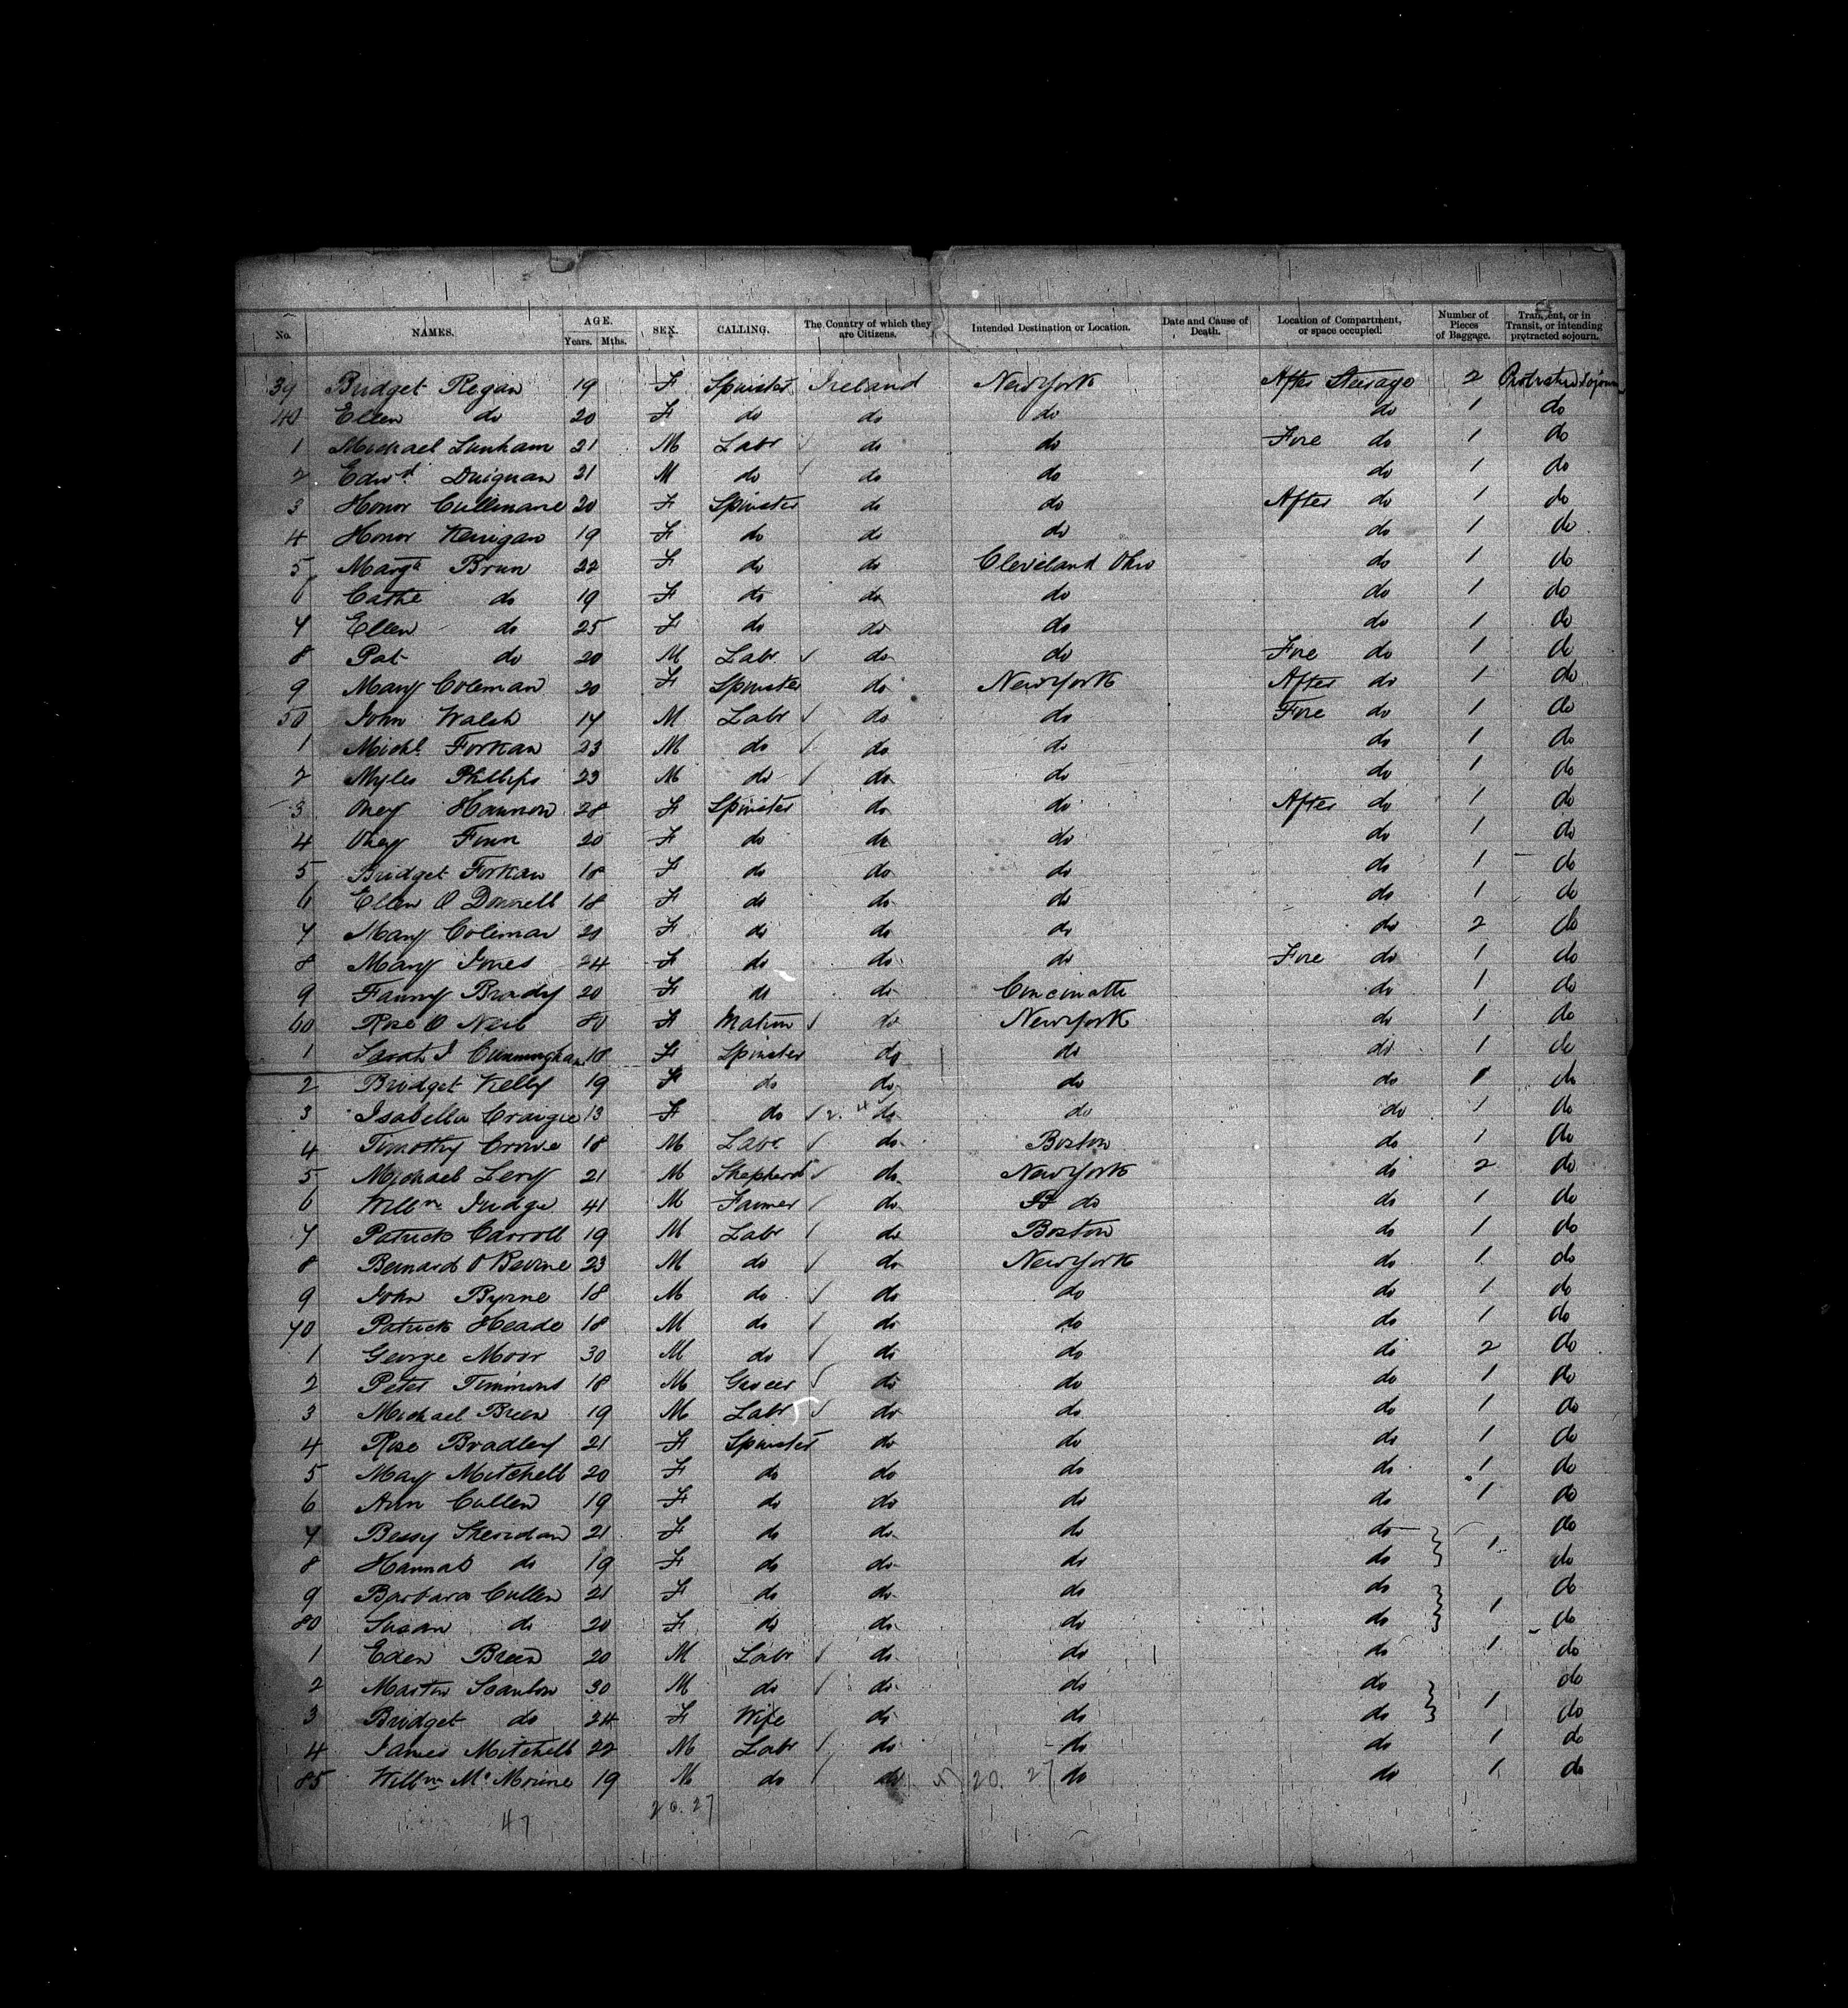 No. NAMES. AGE. Years. Mths. SEX. CALLING. The Country of which they are Citizens. Intended Destination or Location. Date and Cause of Death. Location of Compartment, or space occupied. Number of Pieces of Baggage. Transient, or in Transit, or intending protracted sojourn.
39 Bridget Regan 19 F Spinster Ireland New York After Steerage 2 Protracted Sojourn
40 Ellen do 20 F do do do do 1 do
1 Michael Lanham 21 M Labr do do Fore do 1 do
2 Edwd Duignan 21 M do do do do 1 do
3 Honor Cullinane 20 F Spinster do do After do 1 do
4 Honor Kerrigan 19 F do do do do 1 do
5 Margt Brun 22 F do do Cleveland Ohio do 1 do
6 Cathe do 19 F do do do do 1 do
7 Ellen do 25 F do do do do 1 do
8 Pat do 20 M Labr do do Fore do 1 do
9 Mary Coleman 20 F Spinster do New York After do 1 do
50 John Walsh 17 M Labr do do Fore do 1 do
1 Michl Forkan 23 M do do do do 1 do
2 Myles Phillips 23 M do do do do 1 do
3 Hannon 28 F Spinster do do After do 1 do
4 Finn 20 F do do do do 1 do
5 Bridget Forkan 18 F do do do do 1 do
6 Ellen O Donnell 18 F do do do do 1 do
7 Mary Coleman 20 F do do do do 2 do
8 Mary Jones 24 F do do do Fore do 1 do
9 Fanny Brady 20 F do do Cincinatti do 1 do
60 Rose O Neil 80 F Matron do New York do 1 do
1 Sarah J Cunningham 18 F Spinster do do do 1 do
2 Bridget Kelly 19 F do do do do 1 do
3 Isabella Craigie 13 F do do do do 1 do
4 Timothy Crowe 18 M Labr do Boston do 1 do
5 Michael Levy 21 M Shepherd do New York do 2 do
6 Willm Judge 41 M Farmer do do do 1 do
7 Patrick Carroll 19 M Labr do Boston do 1 do
8 Bernard O 23 M do do New York do 1 do
9 John Byrne 18 M do do do do 1 do
70 Patrick Heade 18 M do do do do 1 do
1 George Moor 30 M do do do do 2 do
2 Peter Timmons 18 M Grocer do do do 1 do
3 Michael Breen 19 M Labr do do do 1 do
4 Rose Bradley 21 F Spinster do do do 1 do
5 May Mitchell 20 F do do do do 1 do
6 Ann Cullen 19 F do do do do 1 do
7 Bessy Sheridan 21 F do do do do 1 do
8 Hannah do 19 F do do do do do
9 Barbara Cullen 21 F do do do do 1 do
80 Susan do 20 F do do do do do
1 Eden Breen 20 M Labr do do do 1 do
2 Martin Scanlon 30 M do do do do 1 do
3 Bridget do 24 F Wife do do do do
4 James Mitchell 22 M Labr do do do 1 do
85 Willm Mc 19 M do do 20. 27 do do 1 do
47 20. 27